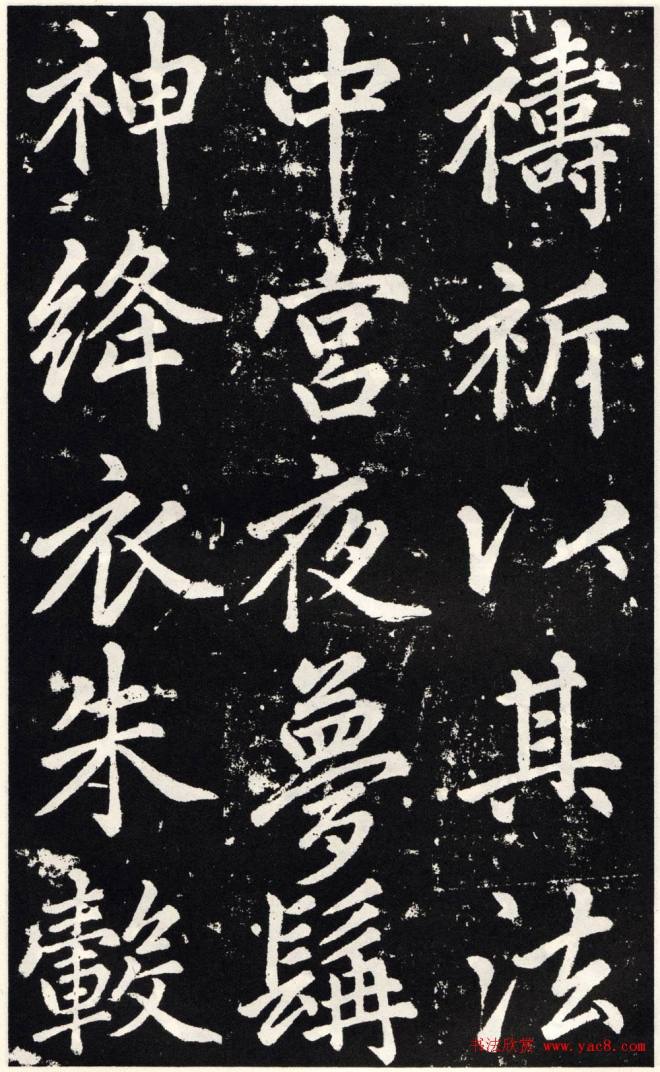 禱祈以其法
中宮夜夢髯
神絳衣朱轂
书法欣赏 www.yac8.com